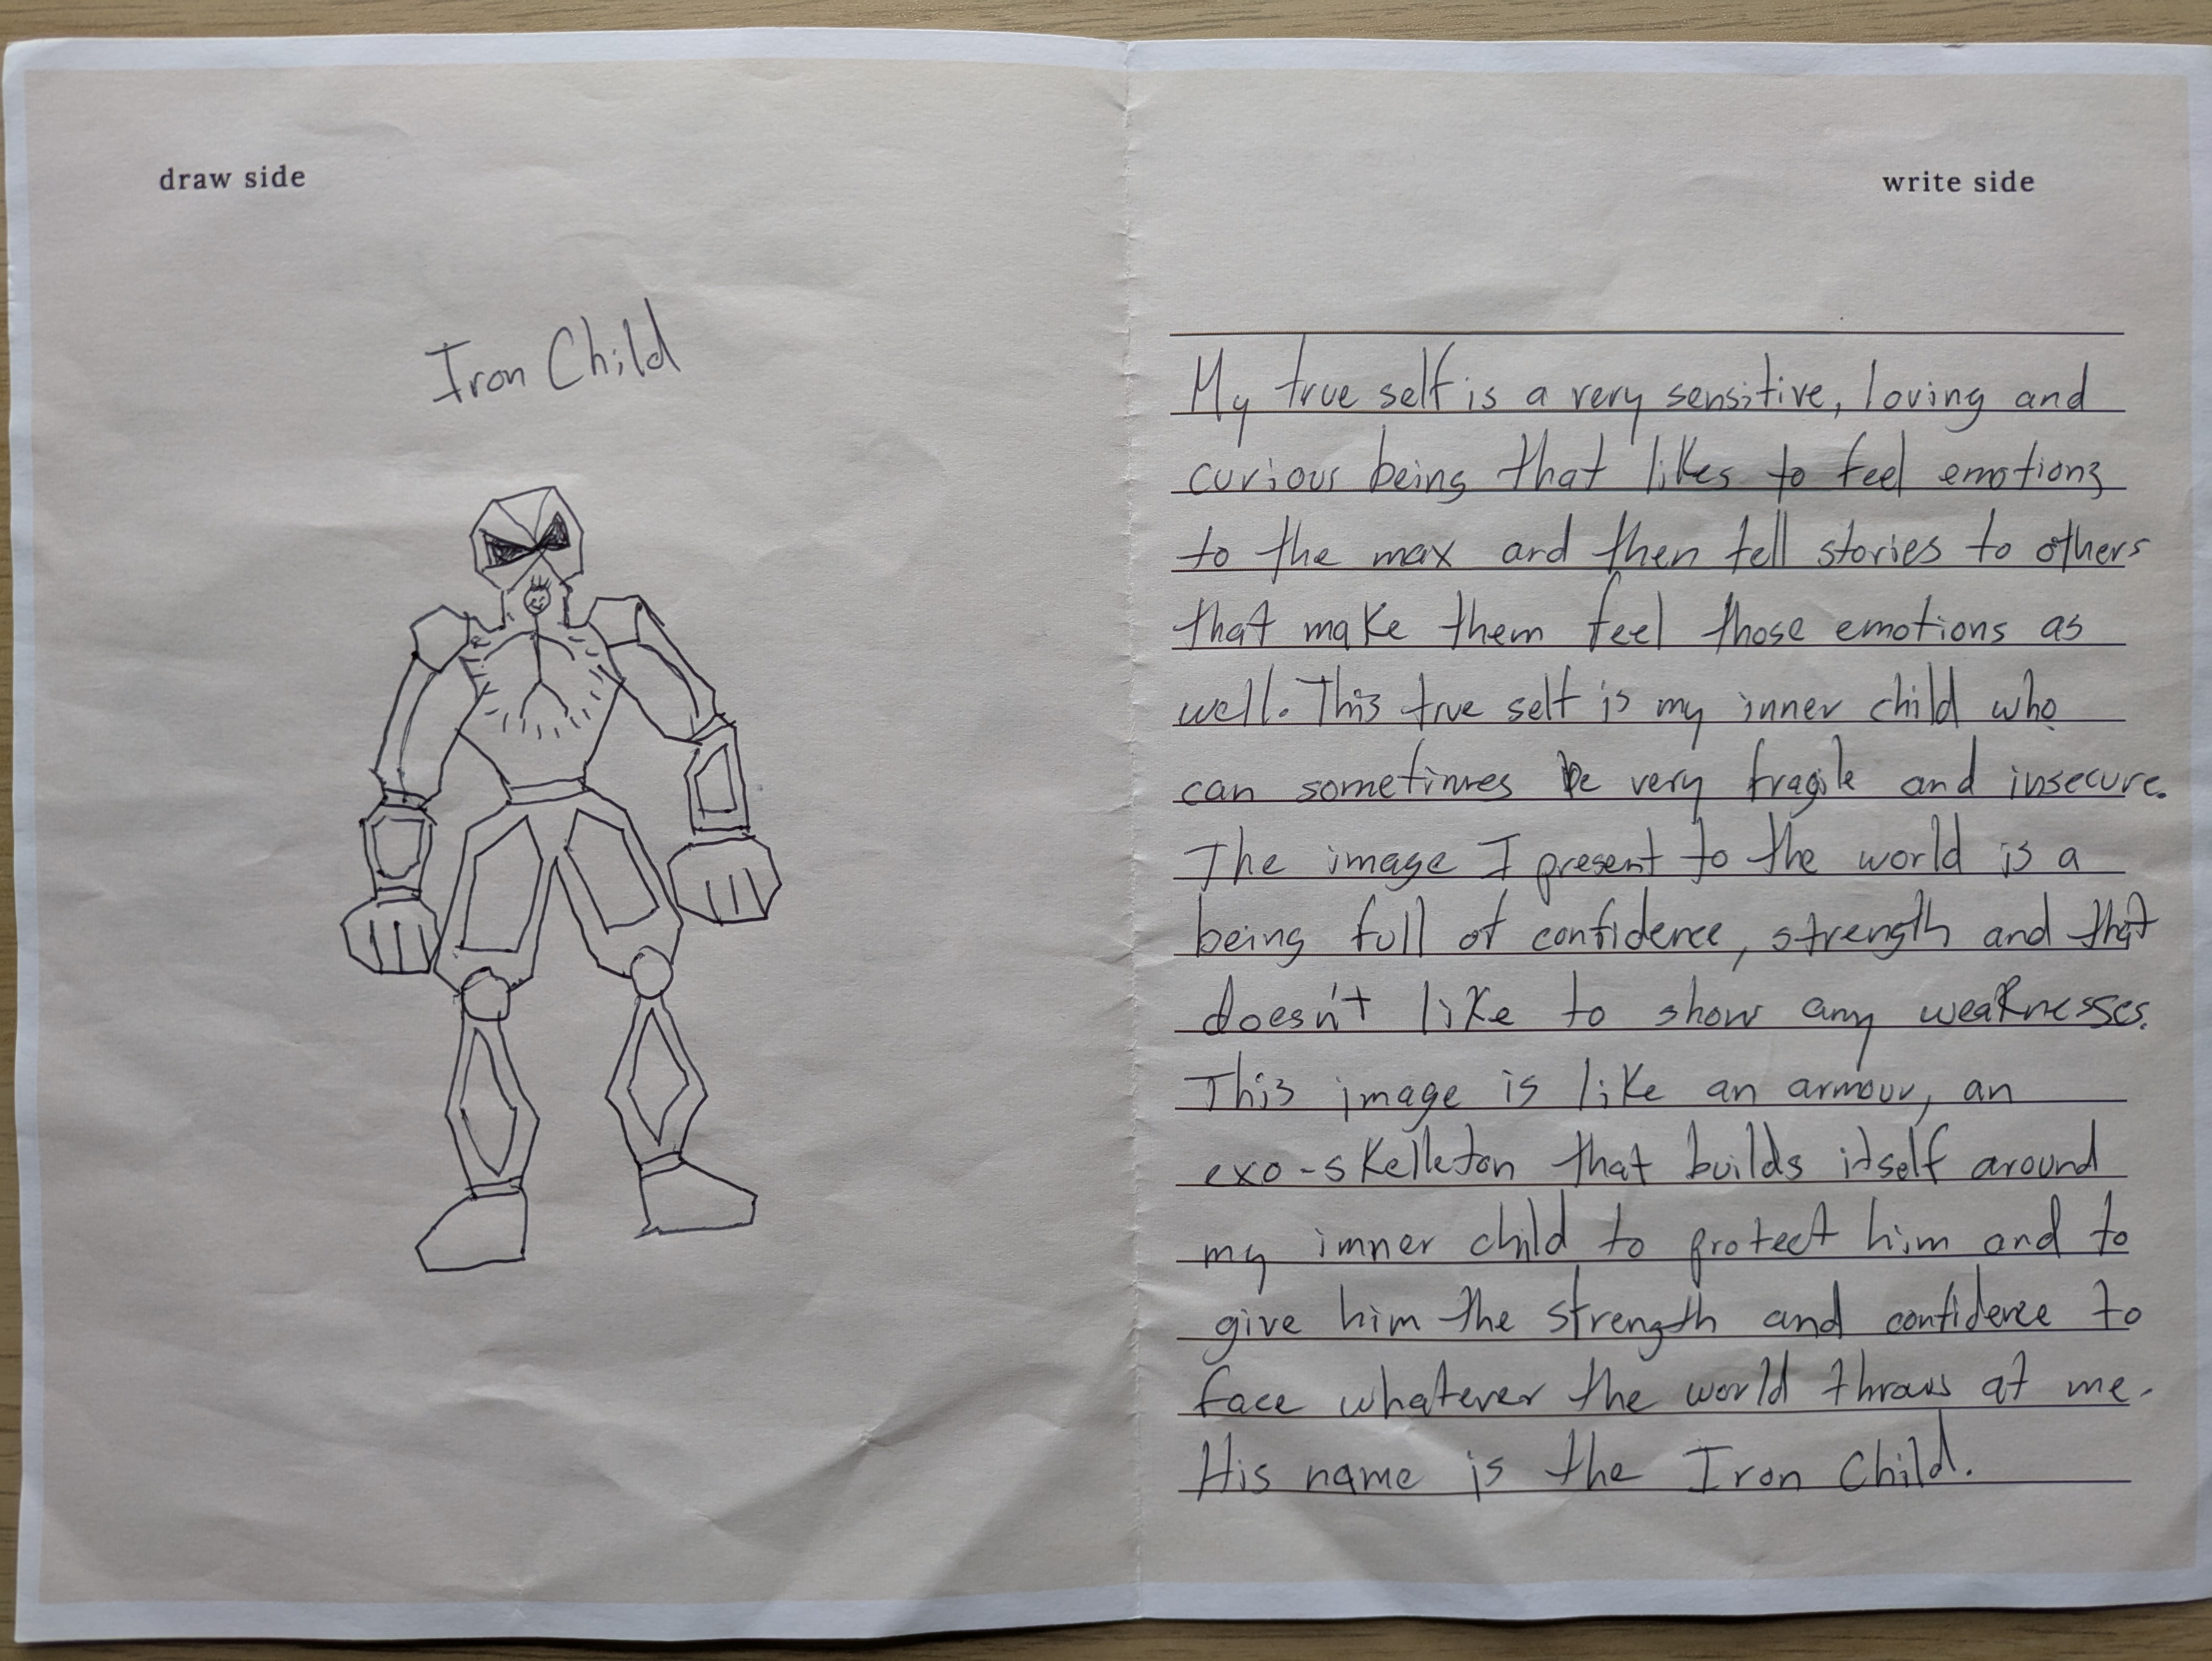 draw side
write side
Iron Child
My true self is a very sensitive, loving and
curious being that likes to feel emotions
to the max and then tell stories to others
that make them feel those emotions as
well. This true self is my inner child who
can sometimes be very fragile and insecure.
The image I present to the world is a
being full of confidence, strength and that
doesn't like to show any weaknesses.
This image is like an armour, an
exo-skelleton that builds itself around
my inner child to protect him and to
give him the strength and confidence to
face whatever the world throws at me.
His name is the Iron Child.